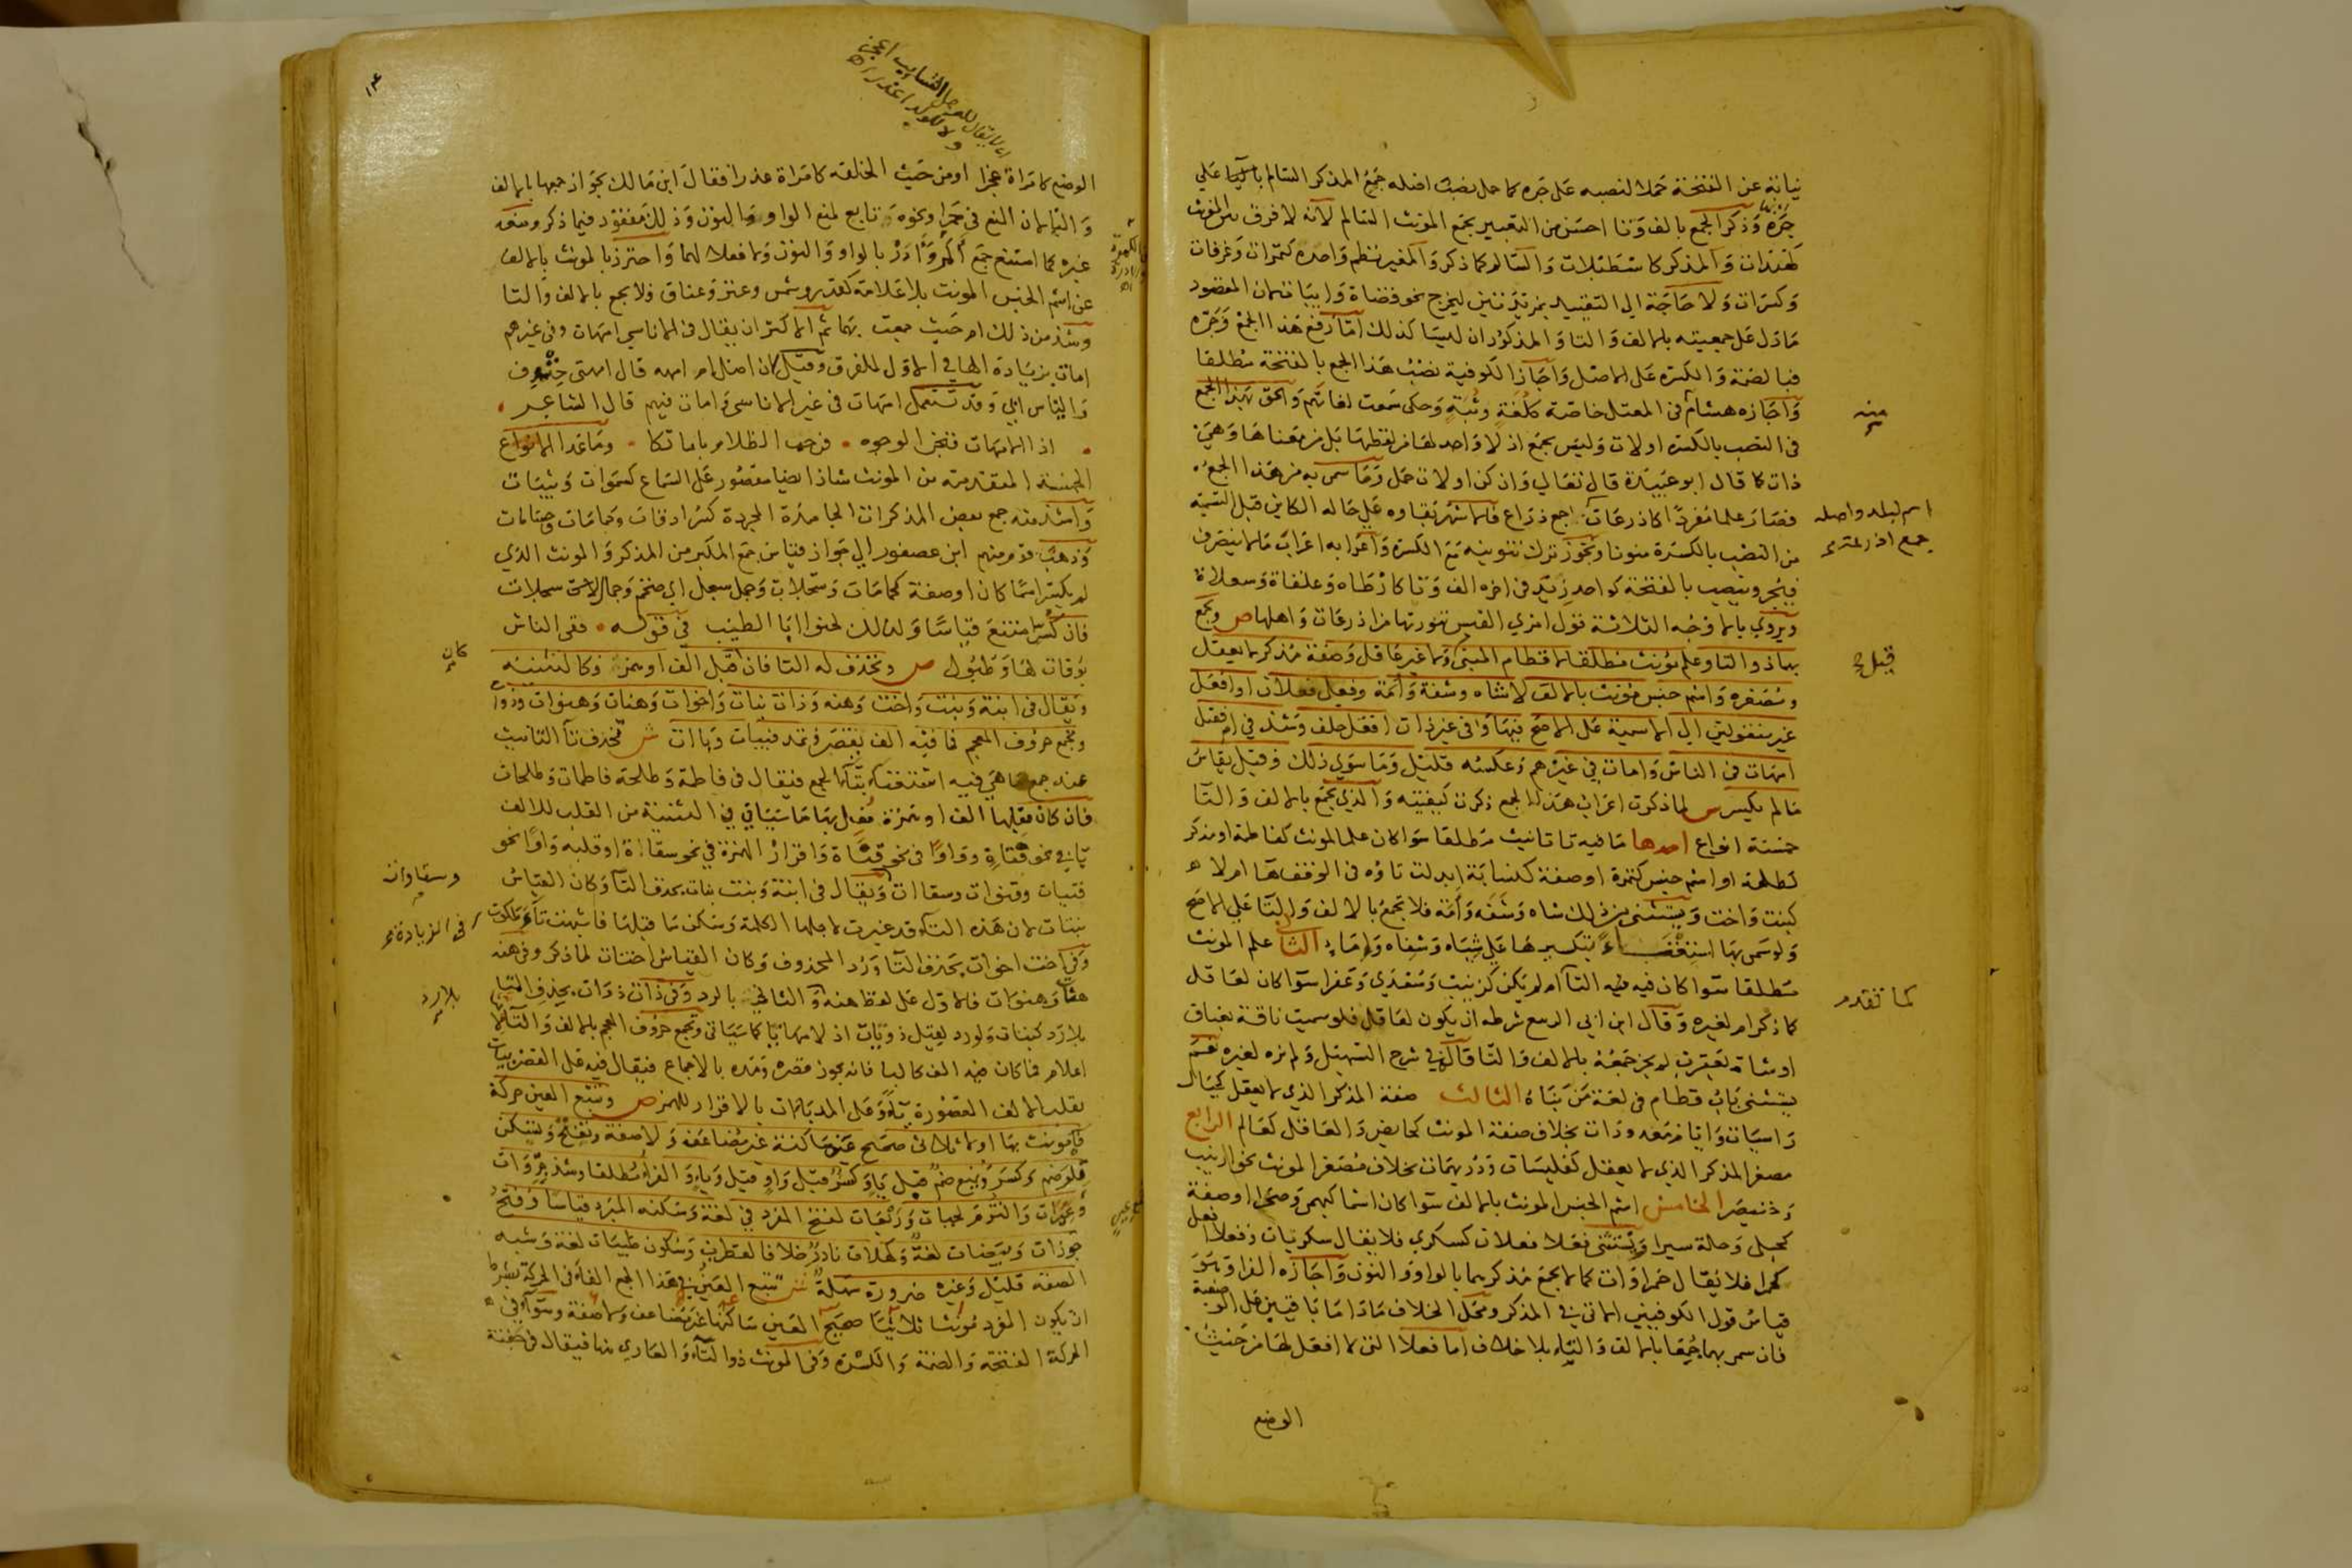 نيابة عن الفتحة حملا لنصبه على جره كما حمل نصب اصله جمع المذكر السالم بالياء على
جره وذكر الجمع بالف وتا احسن من التعبير بجمع المونث السالم لانه لا فرق بين المونث
كهندات والمذكر كاسطبلات والسالم كما ذكر والمغير نظم واحده كتمرات وغرفات
وكسرات ولا حاجة الى التقييد بمزيدتين ليخرج نحو قضاة وابيات لان المقصود
ما دل على جمعيته بالالف والتا والمذكوران ليسا كذلك اما رفع هذا الجمع وجره
فبالضمة والكسرة على الاصل واجاز الكوفية نصب هذا الجمع بالفتحة مطلقا
واجازه هشام فى المعتل خاصة كلغة وثبة وحكى سمعت لغاتهم والحق بهذا الجمع
فى النصب بالكسرة اولات وليس بجمع اذ لا واحد لها من لفظها بل من معناها وهى
ذات كما قال ابو عبيدة قال تعالى وان كن اولات حمل وما سمى به من هذا الجمع
فصار علما مفردا كاذرعات جمع ذراع فالاشهر بقاوه على حاله الكاين قبل التسمية
من النصب بالكسرة منونا ويجوز ترك تنوينه مع الكسرة واعرابه اعراب ما لا ينصرف
فيجر وينصب بالفتحة كواحد زيد فى اخره الف وتا كارطاه وعلقاة وسعلاة
ويروى بالاوجه الثلاثة قول امرئ القيس تنورتها من اذرعات واهلها ص ويجمع
بهما ذو التا وعلم مونث مطلقا لا قطام المبنى ولا غير عاقل وصفة مذكر لا يعقل
ومصغره واسم جنس مونث بالالف لا شاه وشفة وامة وفعلى فعلان او افعل
غير منقولتين الى الاسمية على الاصح فيهما وفى غير ذات افعل خلف وشذ فى ام فقيل
امهات فى الناس وامات فى غيرهم وعكسه قليل وما سوى ذلك وقيل يقاس
ما لم يكسر س لما ذكرت اعراب هذا الجمع ذكرت كيفيته والذى يجمع بالالف والتا
خمسة انواع احدها ما فيه تا تانيث مطلقا سوا كان علما لمونث كفاطمة او مذكر
كطلحة او اسم جنس كتمرة او صفة كنسابة ابدلت تاؤه فى الوقف ها ام لا
كبنت واخت ويستثنى من ذلك شاه وشفة وامة فلا تجمع بالالف والتا على الاصح
ولو سمى بها استغناء بتكسيرها على شياه وشفاه واماء الثانى علم المونث
مطلقا سوا كان فيه التا ام لم يكن كزينب وسعدى وعفرا سوا كان لعاقل
كما ذكر ام لغيره وقال ابن ابى الربيع شرطه ان يكون لعاقل فلو سميت ناقة بعناق
او شاة بعقرب لم يجز جمعه بالالف والتا قال فى شرح التسهيل ولم نره لغيره نعم
يستثنى باب قطام فى لغة من بناه الثالث صفة المذكر الذى لا يعقل كجبال
راسيات وايام معدودات بخلاف صفة المونث كحايض والعاقل كعالم الرابع
مصغر المذكر الذى لا يعقل كفليسات ودريهمات بخلاف مصغر المونث نحو ارينب
وخنيصر الخامس اسم الجنس المونث بالالف سوا كان اسما كبهمى وصحرا او صفة
كحبلى وحلة سيرا ويستثنى فعلا فعلان كسكرى فلا يقال سكريات وفعلا افعل
كحمرا فلا يقال حمراوات كما لا يجمع مذكرهما بالواو والنون واجازه الفرا وهو
قياس قول الكوفيين الاتى فى المذكر ومحل الخلاف ما داما باقيين على الوصفية
فان سمى بهما جمعا بالالف والتاء بلا خلاف اما فعلا التى لا افعل لها من حيث
الوضع
منه
اسم لبلد واصله
جمع اذرعة
قبل
كما تقدم
١٤
الوضع كامراة عجزا او من حيث الخلقة كامراة عذرا فقال ابن مالك بجواز جمعها بالالف
والتا لان المنع فى حمرا ونحوه تابع لمنع الواو والنون وذلك مفقود فيما ذكر ومنعه
غيره كما امتنع جمع اكمر وآدر بالواو والنون ولا فعلا لهما واحترز بالمونث بالالف
عن اسم الجنس المونث بلا علامة كقدر وشمس وعنز وعناق فلا يجمع بالالف والتا
وشذ من ذلك ام حيث جمعت بهما ثم الاكثر ان يقال فى الاناسى امهات وفى غيرهم
امات بزيادة الها فى الاول للفرق وقيل لان اصل ام امهه قال امهتى خندف
والياس ابى وقد تستعمل امهات فى غير الاناسى وامات فيهم قال الشاعر
اذا الامهات قبحن الوجوه فرجت الظلام باماتكا وما عدا الانواع
الخمسة المتقدمة من المونث شاذ ايضا مقصور على السماع كسموات وثيبات
واشذ منه جمع بعض المذكرات الجامدة المجردة كسرادقات وحمامات وحسامات
وذهب قوم منهم ابن عصفور الى جواز قياس جمع المكبر من المذكر والمونث الذى
لم يكسر اسما كان او صفة كحمامات وسجلات وجمل سبحل اى ضخم وجمال سبحلات
فان كسر امتنع قياسا ولذلك لحنوا ابا الطيب فى قوله ففى الناس
بوقات لها وطبول ص وتحذف له التا فان قبل الف او همز فكالتثنية
ويقال فى ابنة وبنت واخت وهنه وذات بنات واخوات وهنات وهنوات وذوات
وتجمع حروف المعجم فما فيه الف يقصر ويمد فبيات وباات ش تحذف تا التانيث
عند جمع ما هى فيه استغنا بتا الجمع فيقال فى فاطمة وطلحة فاطمات وطلحات
فان كان قبلها الف او همزة فعل بهما ما سياتى فى التثنية من القلب للالف
يا فى نحو فتاة وواوا فى نحو قناة واقرار الهمزة فى نحو سقاة او قلبه واوا نحو
فتيات وقنوات وسقاات ويقال فى ابنة وبنت بنات بحذف التا وكان القياس
بنتات لان هذه التا قد غيرت لاجلها الكلمة وسكن ما قبلها فاشبهت تا ملكوت
وفى اخت اخوات بحذف التا ورد المحذوف وكان القياس اختات لما ذكر وفى هنه
هنات وهنوات فالاول على لفظ هنه والثانى بالرد وفى ذات ذوات بحذف التا
بلا رد كبنات ولو رد لقيل ذويات اذ لامها يا كما سياتى وتجمع حروف المعجم بالالف والتا لانها
اعلام فما كان فيه الف كالبا فانه يجوز قصره ومده بالاجماع فيقال فيه على القصر بيات
بقلب الالف المقصورة يا وعلى المد باات بالاقرار للهمز ص وتتبع العين حركة
فا مونث بها او لا ثلاثى صحيح عين ساكنة غير مضاعفة ولا صفة وتفتح وتسكن
تلو ضم وكسر ويمنع ضم قبل يا وكسر قبل واو قيل وياء والفرا مطلقا وشذ جروات
وعيرات والتزم لجبات وربعات لفتح المفرد فى لغة وسكنه المبرد قياسا وفتح
جوزات وبيضات لغة وكهلات نادر خلافا لقطرب وسكون ظبيات لغة وشبه
الصفة قليل وغيره ضرورة سهلة ش تتبع العين فى هذا الجمع الفا فى الحركة بشرط
ان يكون المفرد مونثا ثلاثيا صحيح العين ساكنها غير مضاعف ولا صفة وسوا فى
الحركة الفتحة والضمة والكسرة وفى المونث ذو التا والعارى منها فيقال فى جفنة
كان
وسقاوات
فى الزيادة
بلا رد